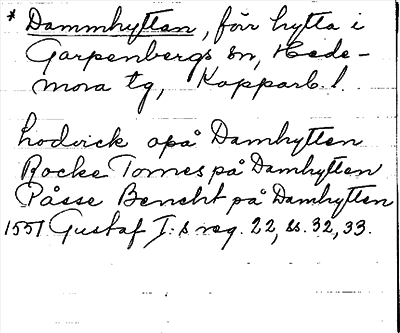 * Dammhyttan, förr hytta i
Garpenbergs sn, Hede-
mora tg, Kopparb. l.
Lodvick opå Damhytten
Rocke Tomes på Damhytten
Påsse Bencht på Damhytten
1551 Gustaf I:s reg. 22, ss. 32, 33.